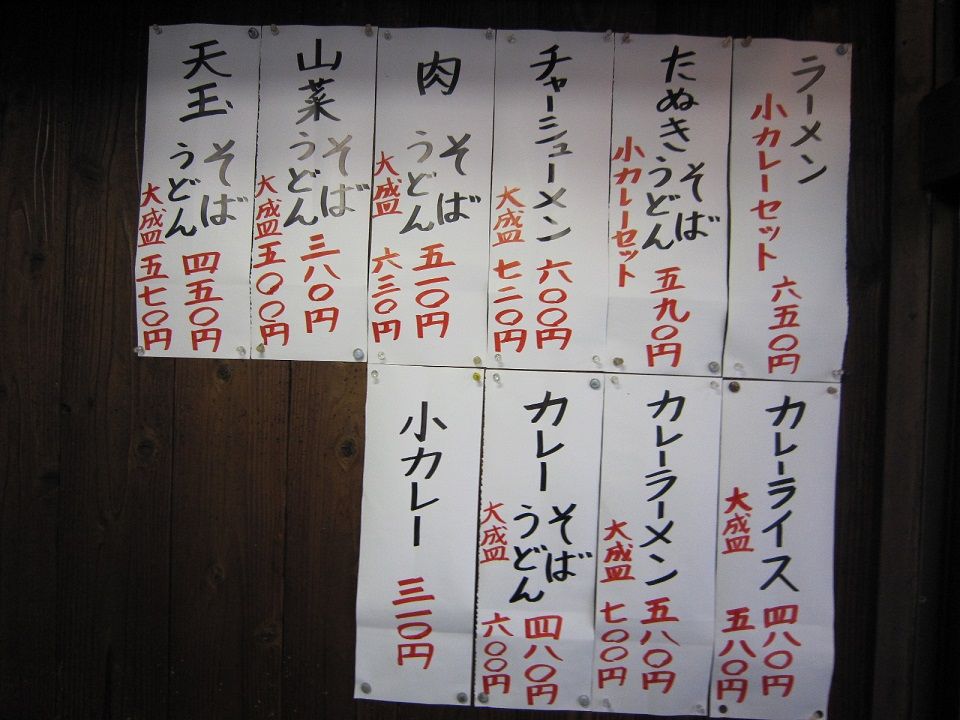 ラーメン
小カレーセット 六五〇円
たぬき
そば
うどん
小カレーセット
五九〇円
チャーシューメン 六〇〇円
大盛 七二〇円
肉
そば
うどん
五一〇円
大盛 六三〇円
山菜
そば
うどん
三八〇円
大盛 五〇〇円
天玉
そば
うどん
四五〇円
大盛 五七〇円
カレーライス 四八〇円
大盛 五八〇円
カレーラーメン 五八〇円
大盛 七〇〇円
カレー
そば
うどん
四八〇円
大盛 六〇〇円
小カレー 三一〇円